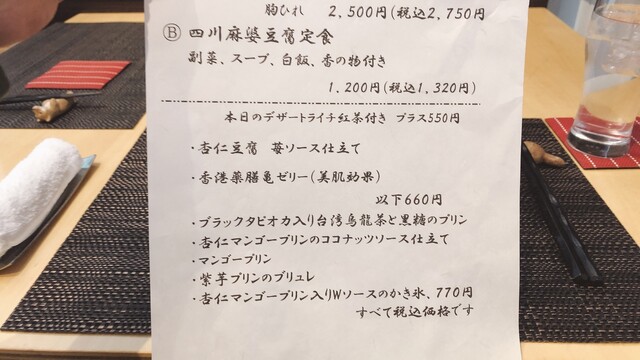 胸ひれ 2,500円(税込2,750円
Ⓑ 四川麻婆豆腐定食
副菜、スープ、白飯、香の物付き
1,200円(税込1,320円)
本日のデザートライチ紅茶付き プラス550円
・杏仁豆腐 苺ソース仕立て
・香港薬膳亀ゼリー(美肌効果)
以下660円
・ブラックタピオカ入り台湾烏龍茶と黒糖のプリン
・杏仁マンゴープリンのココナッツソース仕立て
・マンゴープリン
・紫芋プリンのブリュレ
・杏仁マンゴープリン入りWソースのかき氷、770円
すべて税込価格です